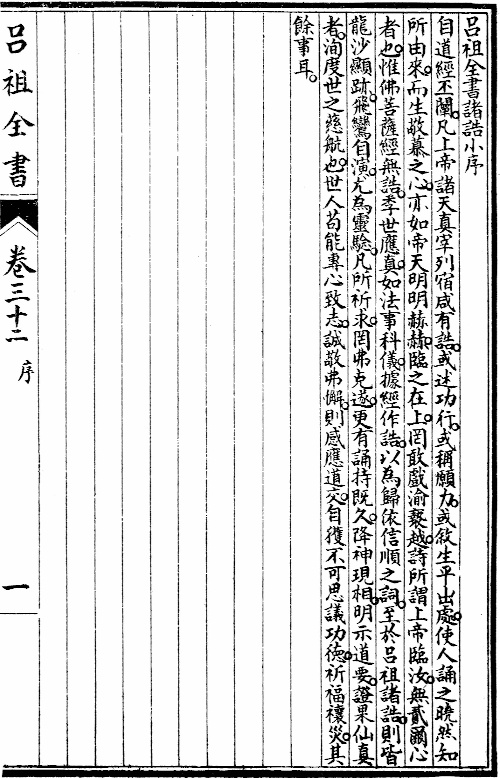 呂祖全書諸誥小序
自道經丕闡。凡上帝諸天真宰列宿咸有誥。或述功行。或稱願力。或敘生平出處。使人誦之曉然知
所由來。而生敬慕之心。亦如帝天明明赫赫。臨之在上。罔敢戲渝褻越。詩所謂上帝臨汝。無貳爾心
者也。惟佛菩薩經無誥。季世應真如法事科儀。據經作誥。以為歸依信順之詞。至於呂祖諸誥。則皆
龍沙顯跡。飛鸞自演。尤為靈驗。凡所祈求。罔弗克遂。更有誦持既久。降神現相。明示道要。證果仙真
者。洵度世之慈航也。世人苟能專心致志。誠敬弗懈。則感應道交。自獲不可思議功德。祈福禳災。其
餘事耳。
呂祖全書
卷三十二
序
一